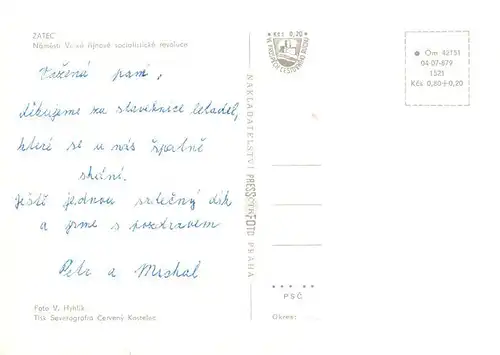 ŽATEC
Náměstí Velké říjnové socialistické revoluce
Vážená paní,
děkujeme za stavebnice letadel,
které se u nás špatně
shání.
Ještě jednou srdečný dík
a jsme s pozdravem
Petr a Michal
Foto V. Hyhlík
Tisk Severografia Červený Kostelec
NAKLADATELSTVÍ PRESSFOTO PRAHA
Kčs 0,20
VE PROSPĚCH CESTOVNÍHO RUCHU
Om 42151
04-07-879
1521
Kčs 0,80+0,20
PSČ
Okres: